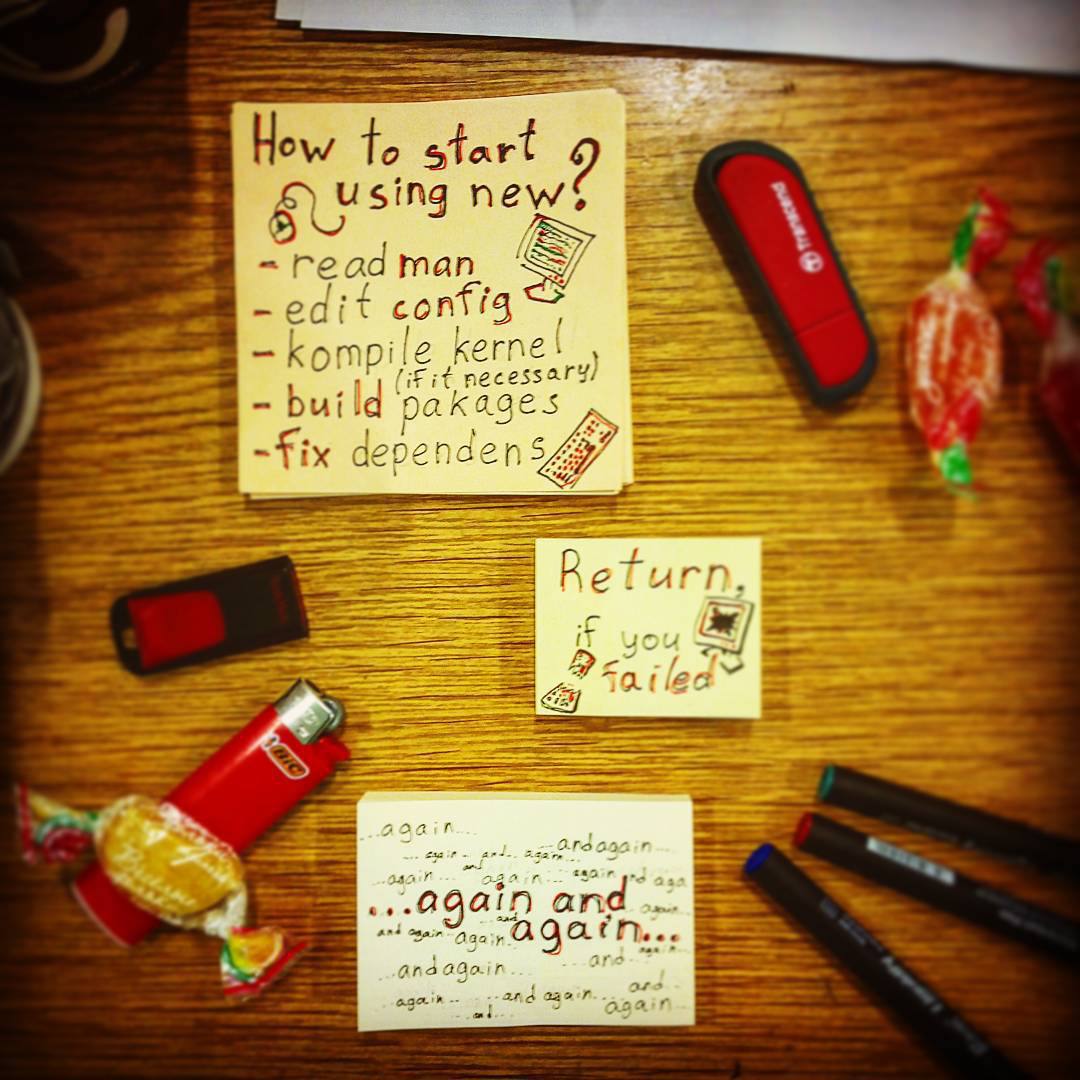 How to start
using new?
- read man
- edit config
- kompile kernel
(if it necessary)
- build pakages
- fix dependens
Transcend
Return,
if you
failed
BIC
...again...
...andagain...
...again... and... again...
and
...again... again... again and aga
...again and
again...
...and
again...
and again... again...
again...
...andagain... ...and...
and...
again... ...and again... again...
...and...